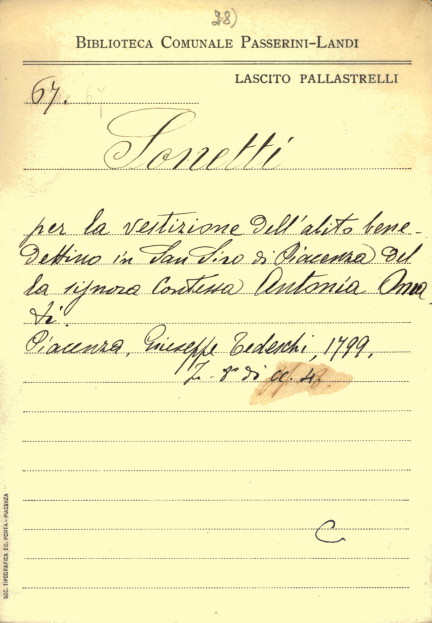 28)
BIBLIOTECA COMUNALE PASSERINI-LANDI
LASCITO PALLASTRELLI
67. 67
Sonetti
per la vestizione dell'abito bene-
dettino in San Siro di Piacenza del
la signora contessa Antonia Oma
ti.
Piacenza, Giuseppe Tedeschi, 1799,
8° di cc. 4.
C
SOC. TIPOGRAFICA ED. PORTA - PIACENZA